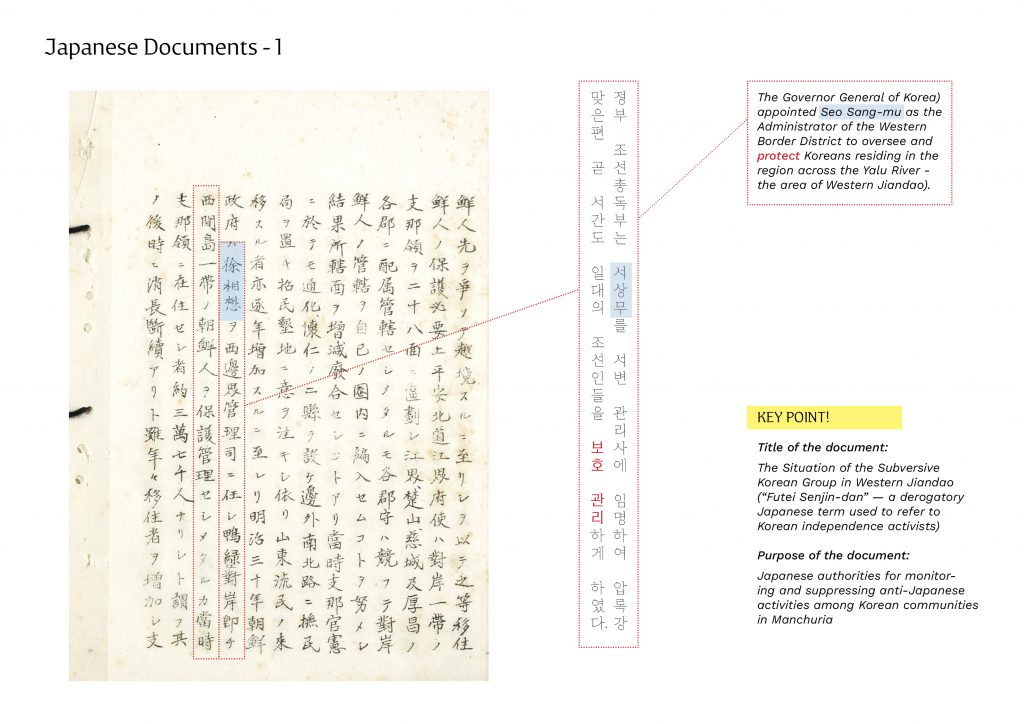 Japanese Documents - 1
鮮人先ヲ爭フテ越境スルニ至リシヲ以テ之等移住
鮮人ノ保護必要上平安北道江界府使ハ對岸一帶ノ
支那領ヲ二十八面ニ區劃シ江界楚山慈城及厚昌ノ
各郡ニ配属管轄セシメタルモ各郡守ハ競フテ對岸
鮮人ノ管轄ヲ自己ノ圏内ニ編入セムコトヲ努メシ
結果所轄面ヲ增減廢合セシコトアリ當時支那官憲
ニ於テモ通化懷仁ノ二縣ヲ設ケ邊外南北路ニ撫民
局ヲ置キ招民墾地ニ意ヲ注キシ依リ山東流民ノ來
移スル者亦逐年增加スルニ至レリ明治三十年朝鮮
政府ハ徐相懋ヲ西邊界管理司ニ任シ鴨綠對岸即チ
西間島一帶ノ朝鮮人ヲ保護管理セシメタルカ當時
支那領ニ在住セシ者約三萬七千人ナリシト謂フ其
ノ後時ニ消長斷續アリト雖年々移住者ヲ增加シ支
정부 조선총독부는 서상무를 서변 관리사에 임명하여 압록강
맞은편 곧 서간도 일대의 조선인들을 보호 관리하게 하였다.
The Governor General of Korea)
appointed Seo Sang-mu as the
Administrator of the Western
Border District to oversee and
protect Koreans residing in the
region across the Yalu River -
the area of Western Jiandao).
KEY POINT!
Title of the document:
The Situation of the Subversive
Korean Group in Western Jiandao
(“Futei Senjin-dan” — a derogatory
Japanese term used to refer to
Korean independence activists)
Purpose of the document:
Japanese authorities for monitor-
ing and suppressing anti-Japanese
activities among Korean communities
in Manchuria